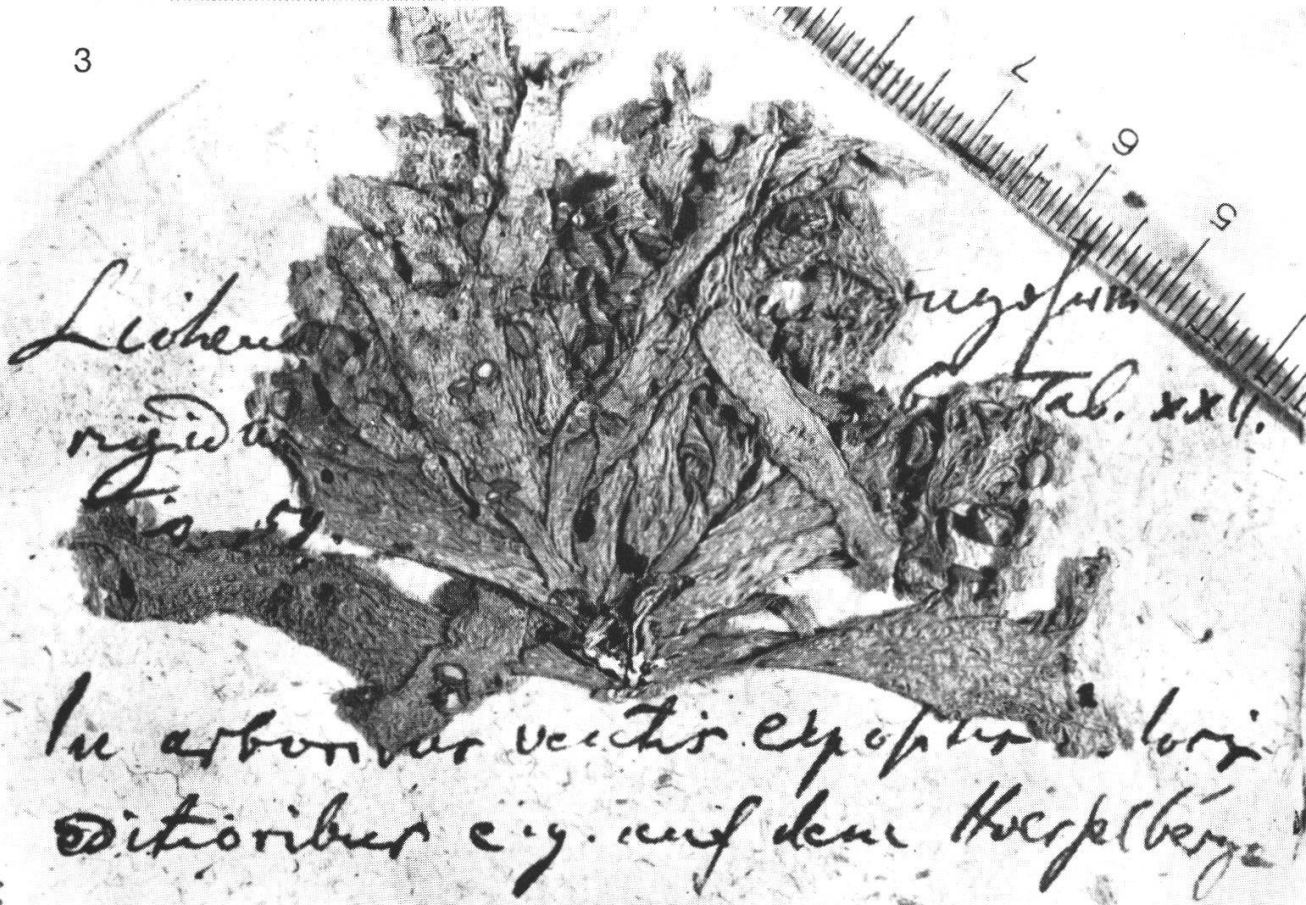 3
7
6
5
Lichen
rugosum
rigidu
Tab. XXII.
59.
In arboribus ventis expositis locis
editioribus e.g. auf dem Hoerselberge